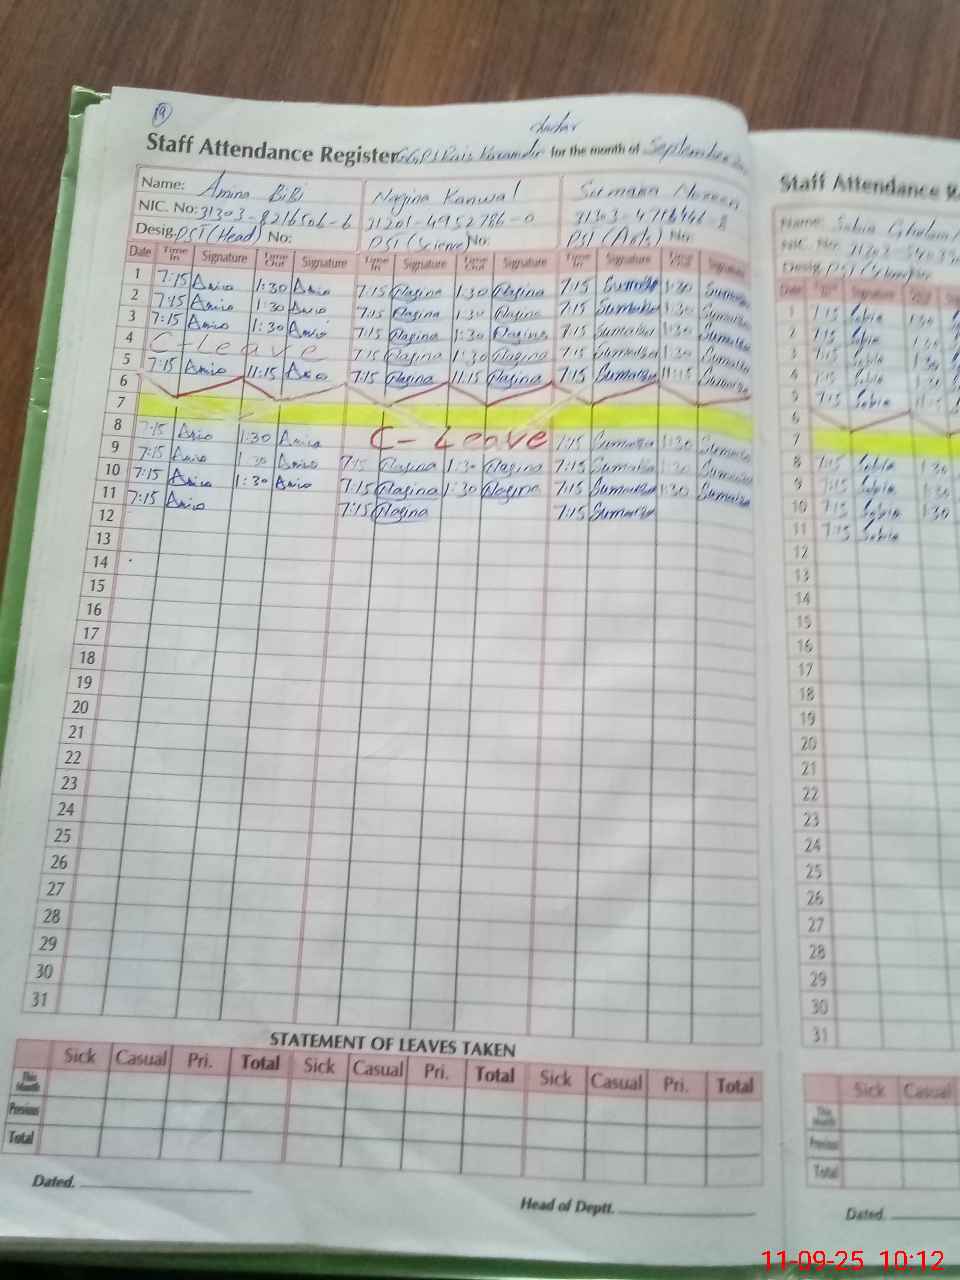 19
dadar
Staff Attendance Register GGPS Rais Karamdir for the month of September
Name: Amina BiBi Nagina Kanwal Sumaira Noreen
NIC. No: 31303-8216506-6 31201-4952786-0 31303-4716446-8
Desig. PST (Head) No: PST (Science) No: PST (Arts) No:
Date Time In Signature Time Out Signature Time In Signature Time Out Signature Time In Signature Time Out Signature
1 7:15 Amio 1:30 Amio 7:15 Nagina 1:30 Nagina 7:15 Sumaira 1:30 Sumaira
2 7:15 Amio 1:30 Amio 7:15 Nagina 1:30 Nagina 7:15 Sumaira 1:30 Sumaira
3 7:15 Amio 1:30 Amio 7:15 Nagina 1:30 Nagina 7:15 Sumaira 1:30 Sumaira
4 C-leave 7:15 Nagina 1:30 Nagina 7:15 Sumaira 1:30 Sumaira
5 7:15 Amio 11:15 Amio 7:15 Nagina 11:15 Nagina 7:15 Sumaira 11:15 Sumaira
6
7
8 7:15 Amio 1:30 Amio C-Leave 7:15 Sumaira 1:30 Sumaira
9 7:15 Amio 1:30 Amio 7:15 Nagina 1:30 Nagina 7:15 Sumaira 1:30 Sumaira
10 7:15 Amio 1:30 Amio 7:15 Nagina 1:30 Nagina 7:15 Sumaira 1:30 Sumaira
11 7:15 Amio 7:15 Nagina 7:15 Sumaira
12
13
14
15
16
17
18
19
20
21
22
23
24
25
26
27
28
29
30
31
STATEMENT OF LEAVES TAKEN
Sick Casual Pri. Total Sick Casual Pri. Total Sick Casual Pri. Total
This Month
Previous
Total
Dated.
Head of Deptt.
Staff Attendance R
Name: Sobia Ghulam
NIC. No:
Desig.
Date In Signature Out
1 7:15 Sobia 1:30
2 7:15 Sobia 1:30
3 7:15 Sobia 1:30
4 7:15 Sobia 1:30
5 7:15 Sobia 11:15
6
7
8 7:15 Sobia 1:30
9 7:15 Sobia 1:30
10 7:15 Sobia 1:30
11 7:15 Sobia
12
13
14
15
16
17
18
19
20
21
22
23
24
25
26
27
28
29
30
31
Sick Casual
This Month
Previous
Total
Dated.
11-09-25 10:12